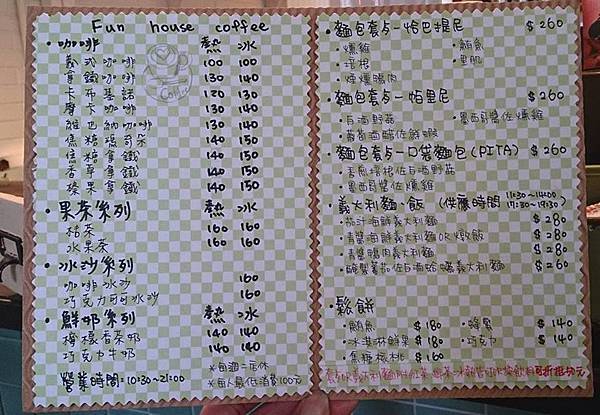 Fun house coffee
咖啡 熱 冰
義式咖啡 100 100
拿鐵咖啡 130 140
卡布基諾 120 130
摩卡咖啡 130 140
維也納咖啡 130 140
焦糖瑪奇朵 140 150
焦糖拿鐵 140 150
香草拿鐵 140 150
榛果拿鐵 140 150
果茶系列 熱 冰
桔茶 160 160
水果茶 160 160
冰沙系列
咖啡冰沙 160
巧克力可可冰沙 160
鮮奶系列 熱 冰
檸檬香茶奶 140 140
巧克力牛奶 140 140
營業時間=10:30~21:00
*每週二店休
*每人最低消費100元
麵包套餐—帕巴提尼 $260
燻雞 鮪魚
培根 里肌
煙燻鴨肉
麵包套餐—帕里尼 $260
白酒野菇 墨西哥醬佐燻雞
蒔蘿油醋佐鮮蝦
麵包套餐—口袋麵包(PITA) $260
培根佐白酒野菇
墨西哥醬佐燻雞
義大利麵、飯 (供應時間 11:30~14:00 17:30~19:30)
茄汁海鮮義大利麵 $280
青醬海鮮義大利麵OR燉飯 $280
青醬鴨肉義大利麵 $280
鹽製蕃茄佐白酒蛤蠣義大利麵 $260
鬆餅
鮪魚 $180 蜂蜜 $140
冰淇淋鮮果 $180 巧克力 $140
焦糖核桃 $160